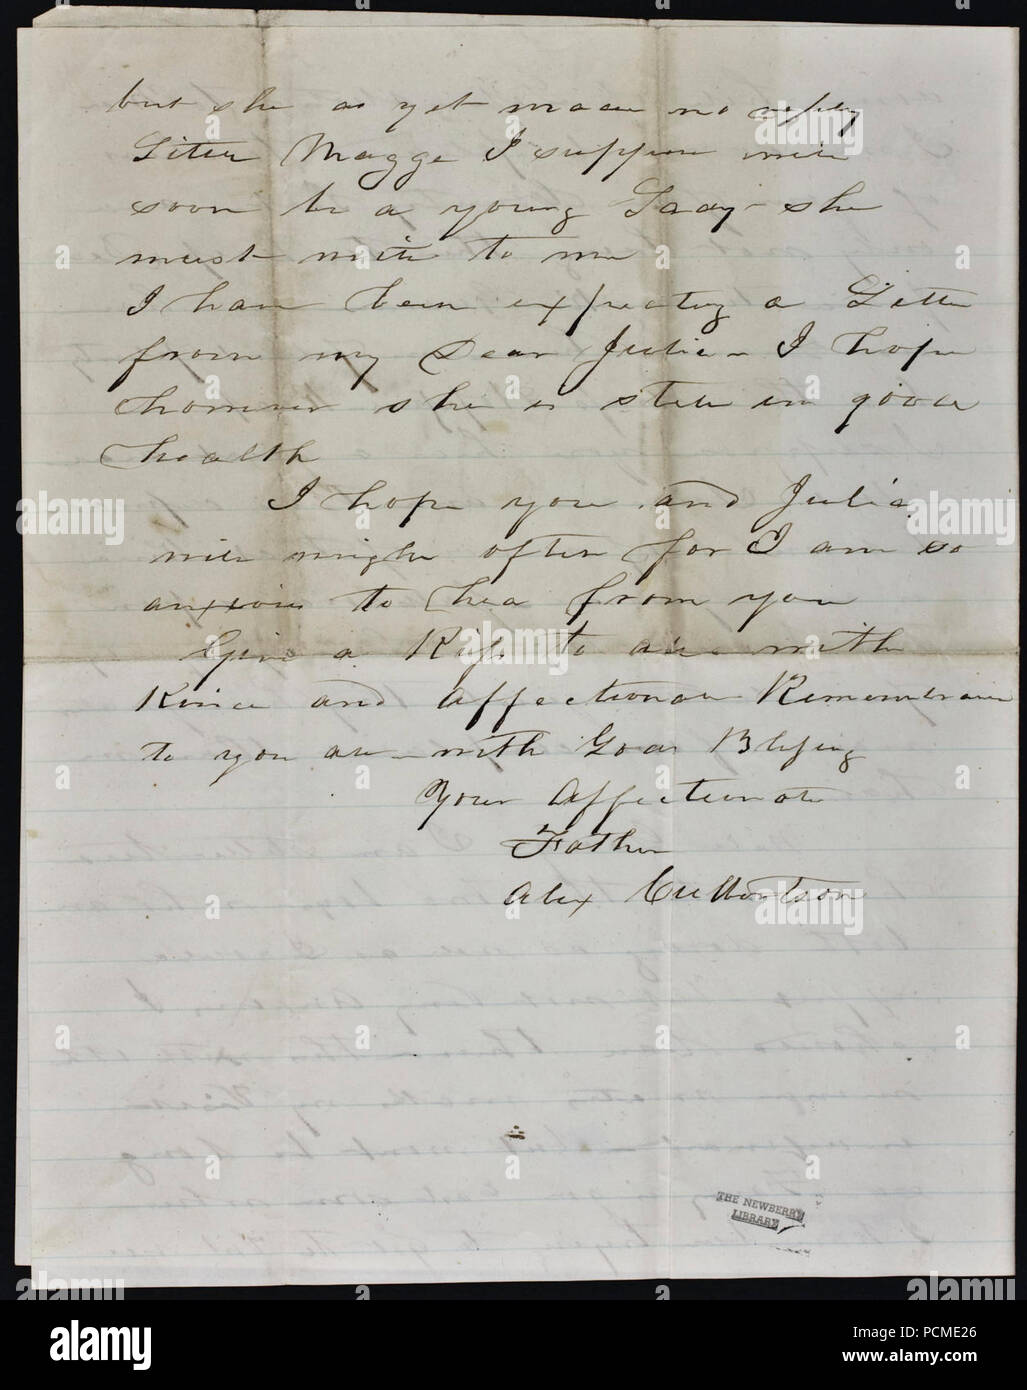 but she as yet made no reply
Little Magge I suppose will
soon be a young Lady - she
must write to me
I have been expecting a Letter
from my Dear Julia - I hope
however she is still in good
health
I hope you and Julia
will might often for I am so
anxious to hea from you
Give a Kiss to all with
Kind and affectionate Remembrance
to you all - with Gods Blessing
Your Affectionate
Father
Alex Culbertson
THE NEWBERRY
LIBRARY
alamy
alamy
Image ID: PCME26
www.alamy.com